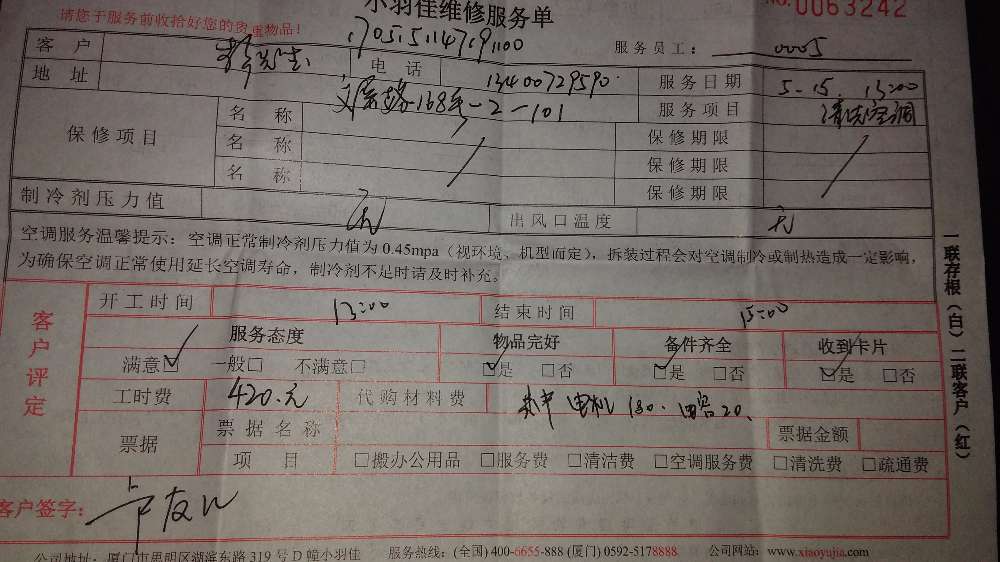 小羽佳维修服务单
NO. 0063242
请您于服务前收拾好您的贵重物品!
服务员工: 0005
客户 电话 13400729590 服务日期 5-15. 13:00
地址 168号-2-101 服务项目 清洗空调
保修项目 名称 保修期限
名称 保修期限
名称 保修期限
制冷剂压力值 无 出风口温度 无
空调服务温馨提示:空调正常制冷剂压力值为0.45mpa(视环境、机型而定),拆装过程会对空调制冷或制热造成一定影响,
为确保空调正常使用延长空调寿命,制冷剂不足时请及时补充。
客户评定
开工时间 13:00 结束时间 15:00
服务态度 物品完好 备件齐全 收到卡片
满意☑ 一般□ 不满意□ ☑是 □否 ☑是 □否 ☑是 □否
工时费 420.元 代购材料费 其中 电机 180. 电容 20.
票据 票据名称 票据金额
项目 □搬办公用品 □服务费 □清洁费 □空调服务费 □清洗费 □疏通费
客户签字:
公司地址:厦门市思明区湖滨东路319号D幢小羽佳 服务热线:(全国)400-6655-888 (厦门)0592-5178888 公司网站:www.xiaoyujia.com
一联存根(白)二联客户(红)